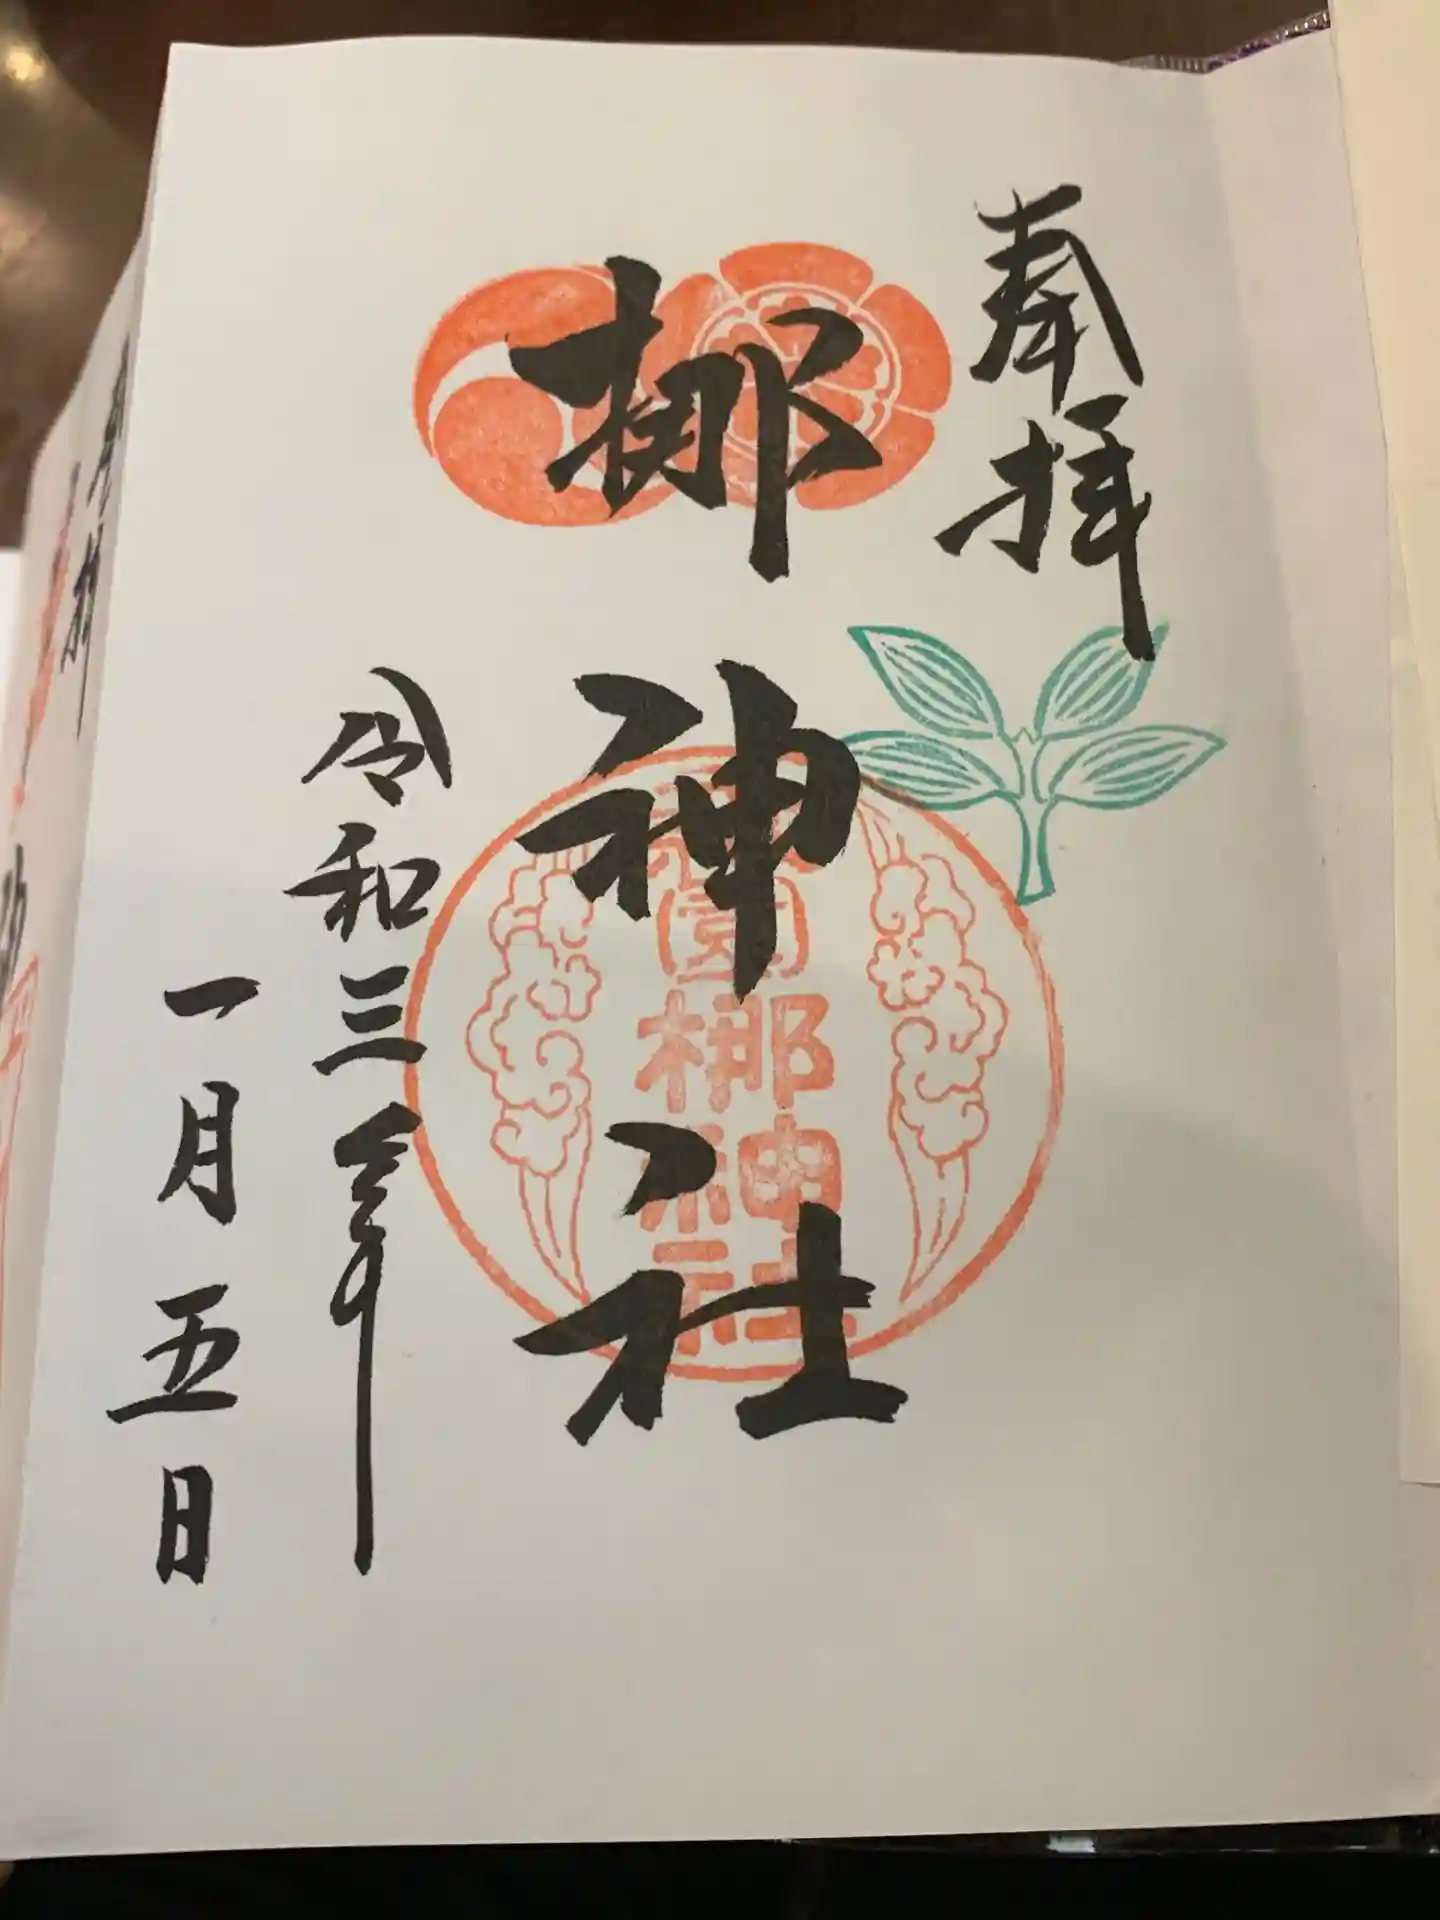 奉拝
梛神社
令和三年
一月五日
梛
神
社